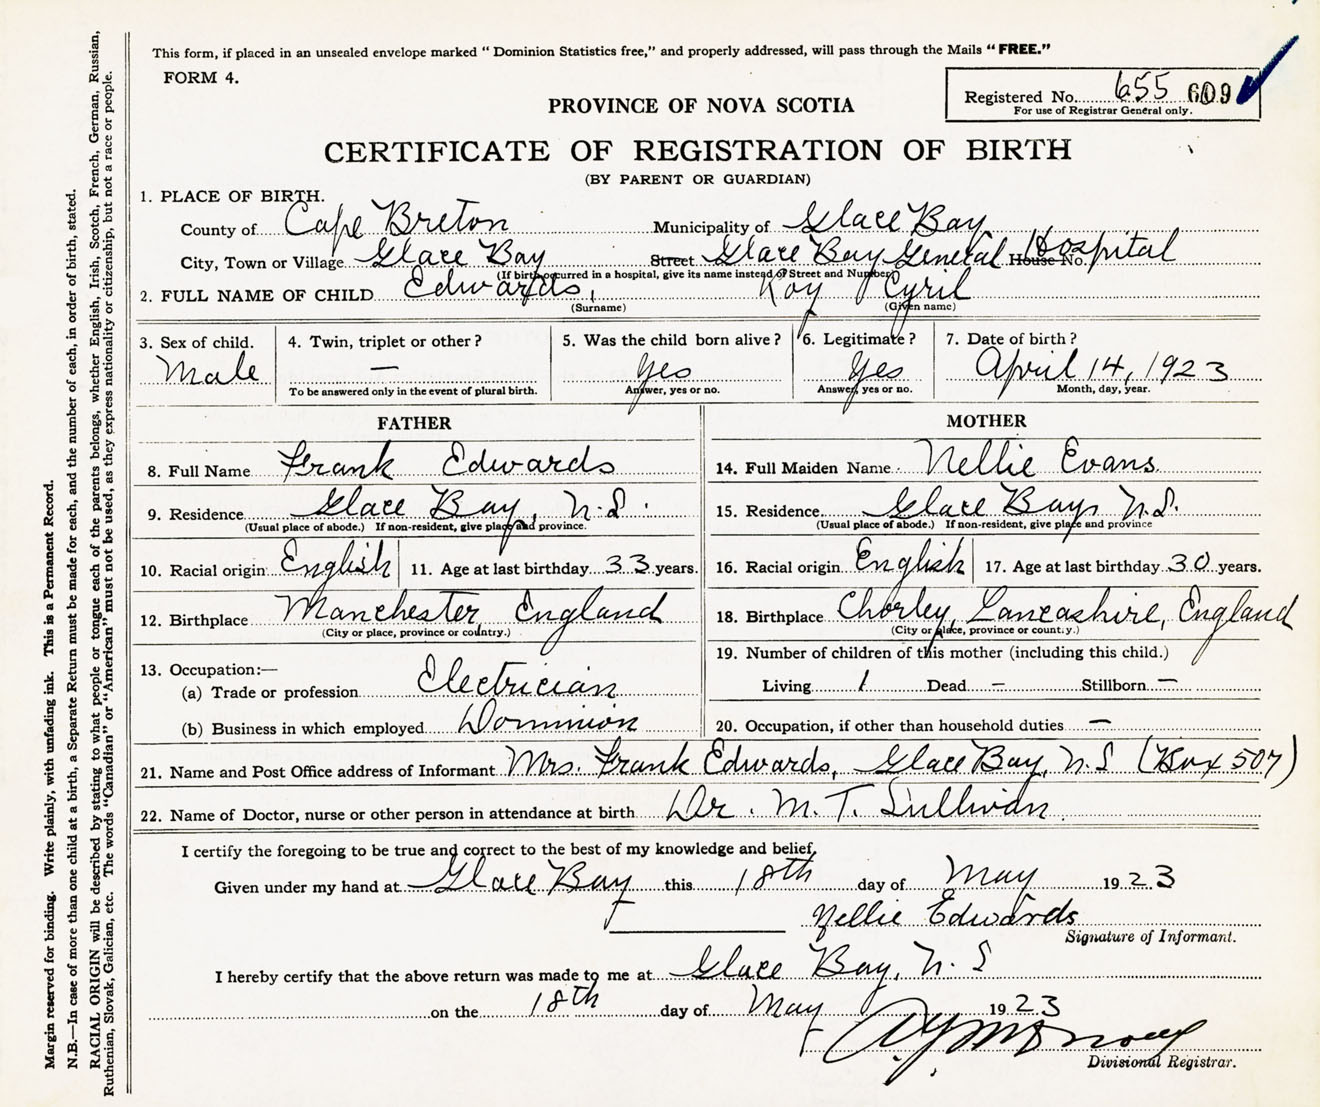 This form, if placed in an unsealed envelope marked "Dominion Statistics free," and properly addressed, will pass through the Mails "FREE."
FORM 4.
Registered No. 655 609
For use of Registrar General only.
PROVINCE OF NOVA SCOTIA
CERTIFICATE OF REGISTRATION OF BIRTH
(BY PARENT OR GUARDIAN)
1. PLACE OF BIRTH.
County of Cape Breton Municipality of Glace Bay
City, Town or Village Glace Bay Street Glace Bay General House No. Hospital
(If birth occurred in a hospital, give its name instead of Street and Number)
2. FULL NAME OF CHILD Edwards, Roy Cyril
(Surname) (Given name)
3. Sex of child. 4. Twin, triplet or other? 5. Was the child born alive? 6. Legitimate? 7. Date of birth?
Male — Yes Yes April 14, 1923
To be answered only in the event of plural birth. Answer, yes or no. Answer, yes or no. Month, day, year.
FATHER
8. Full Name Frank Edwards
9. Residence Glace Bay, N.S.
(Usual place of abode.) If non-resident, give place and province.
10. Racial origin English 11. Age at last birthday 33 years.
12. Birthplace Manchester, England
(City or place, province or country.)
13. Occupation:—
(a) Trade or profession Electrician
(b) Business in which employed Dominion
MOTHER
14. Full Maiden Name Nellie Evans
15. Residence Glace Bay, N.S.
(Usual place of abode.) If non-resident, give place and province
16. Racial origin English 17. Age at last birthday 30 years.
18. Birthplace Chorley, Lancashire, England
(City or place, province or country.)
19. Number of children of this mother (including this child.)
Living 1 Dead — Stillborn —
20. Occupation, if other than household duties —
21. Name and Post Office address of Informant Mrs. Frank Edwards, Glace Bay, N.S (Box 507)
22. Name of Doctor, nurse or other person in attendance at birth Dr. M. T. Sullivan
I certify the foregoing to be true and correct to the best of my knowledge and belief,
Given under my hand at Glace Bay this 18th day of May 1923
Nellie Edwards
Signature of Informant.
I hereby certify that the above return was made to me at Glace Bay, N.S
on the 18th day of May 1923
Divisional Registrar.
Margin reserved for binding. Write plainly, with unfading ink. This is a Permanent Record.
N.B.—In case of more than one child at a birth, a Separate Return must be made for each, and the number of each, in order of birth, stated.
RACIAL ORIGIN will be described by stating to what people or tongue each of the parents belongs, whether English, Irish, Scotch, French, German, Russian,
Ruthenian, Slovak, Galician, etc. The words "Canadian" or "American" must not be used, as they express nationality or citizenship, but not a race or people.